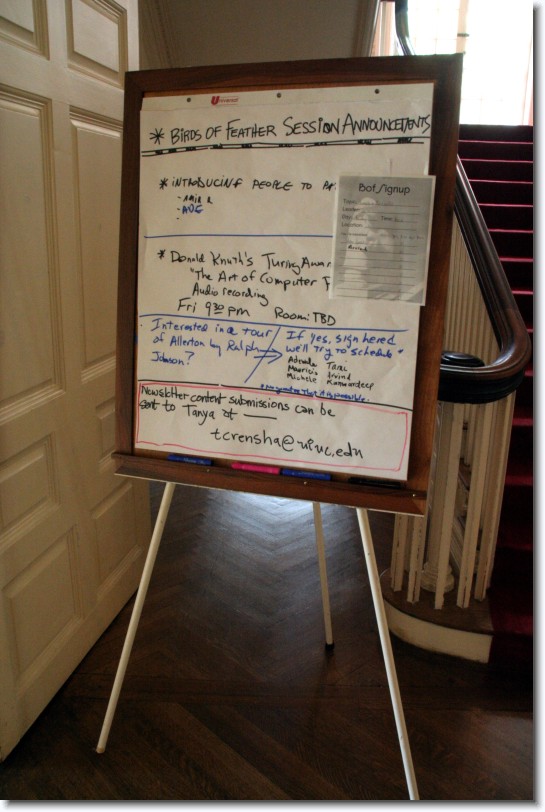 Universal
* BIRDS OF FEATHER SESSION ANNOUNCEMENTS
* INTRODUCING PEOPLE TO
BofSignup
Topic:
Location:
* Donald Knuth's Turing Awar
"The Art of Computer P
Audio recording
Fri 9:30 pm Room: TBD
Interested in a tour
of Allerton by Ralph
Johnson?
If yes, sign here &
we'll try to schedule
Mauricio Arvind
Michele Kamandeep
Newsletter content submissions can be
sent to Tanya at
tcrensha@uiuc.edu